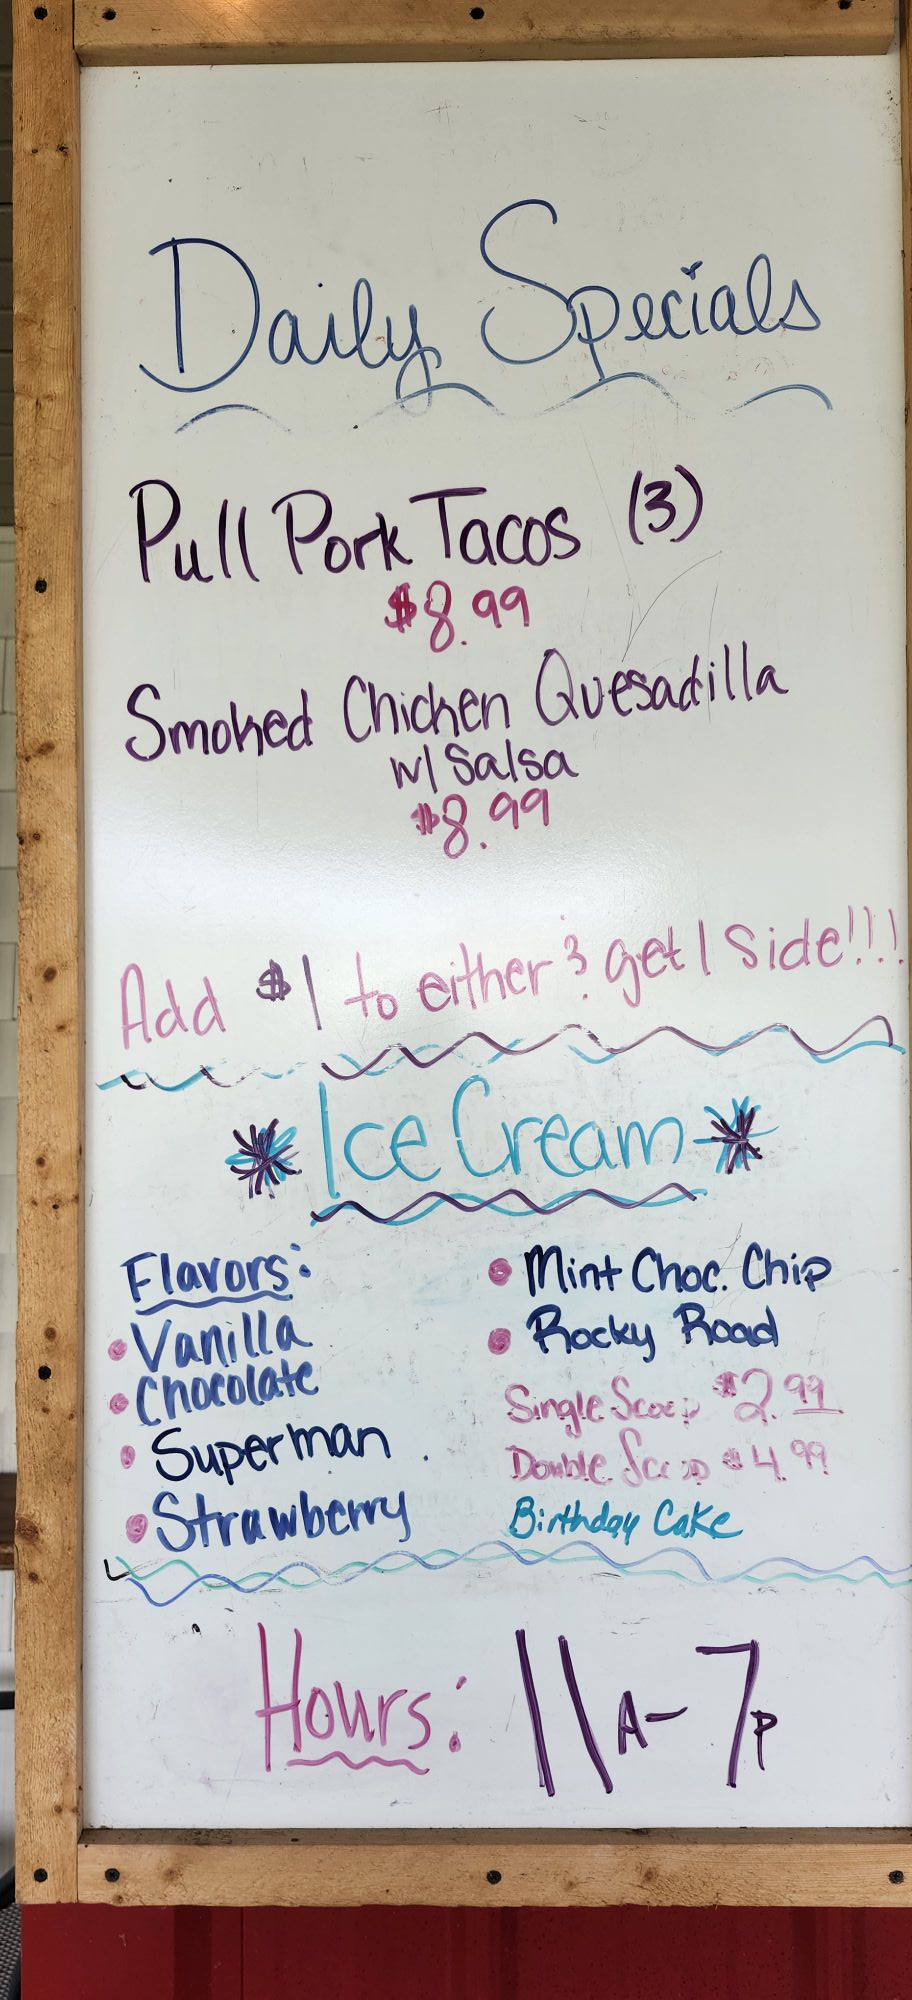 Daily Specials
Pull Pork Tacos (3)
$8.99
Smoked Chicken Quesadilla
w/ Salsa
$8.99
Add $1 to either & get 1 side!!!
Ice Cream
Flavors:
Vanilla
Chocolate
Superman
Strawberry
Mint Choc. Chip
Rocky Road
Single Scoop $2.99
Double Scoop $4.99
Birthday Cake
Hours: 11A-7P